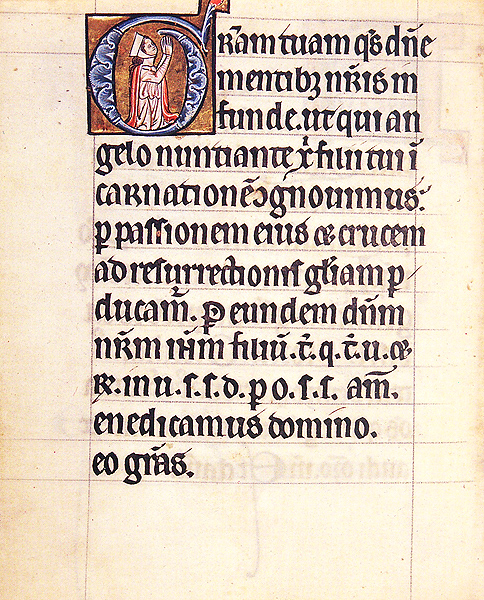 Gr̄am tuam q̄s dn̄e
mentibꝫ nr̄is in
funde. ut qui an
gelo nuntiante xp̄i filii tui ī
carnationē ↄgnouimus:
ꝑ passionem eius & crucem
ad resurrectionis gl̄iam ꝑ
ducam̄. P̄ eundem dn̄m
nr̄m ih̄m filiū. t̄. q. t̄. u. &
R. in u. s. s. d. p o. s. s. am̄.
enedicamus domino.
eo gr̄as.